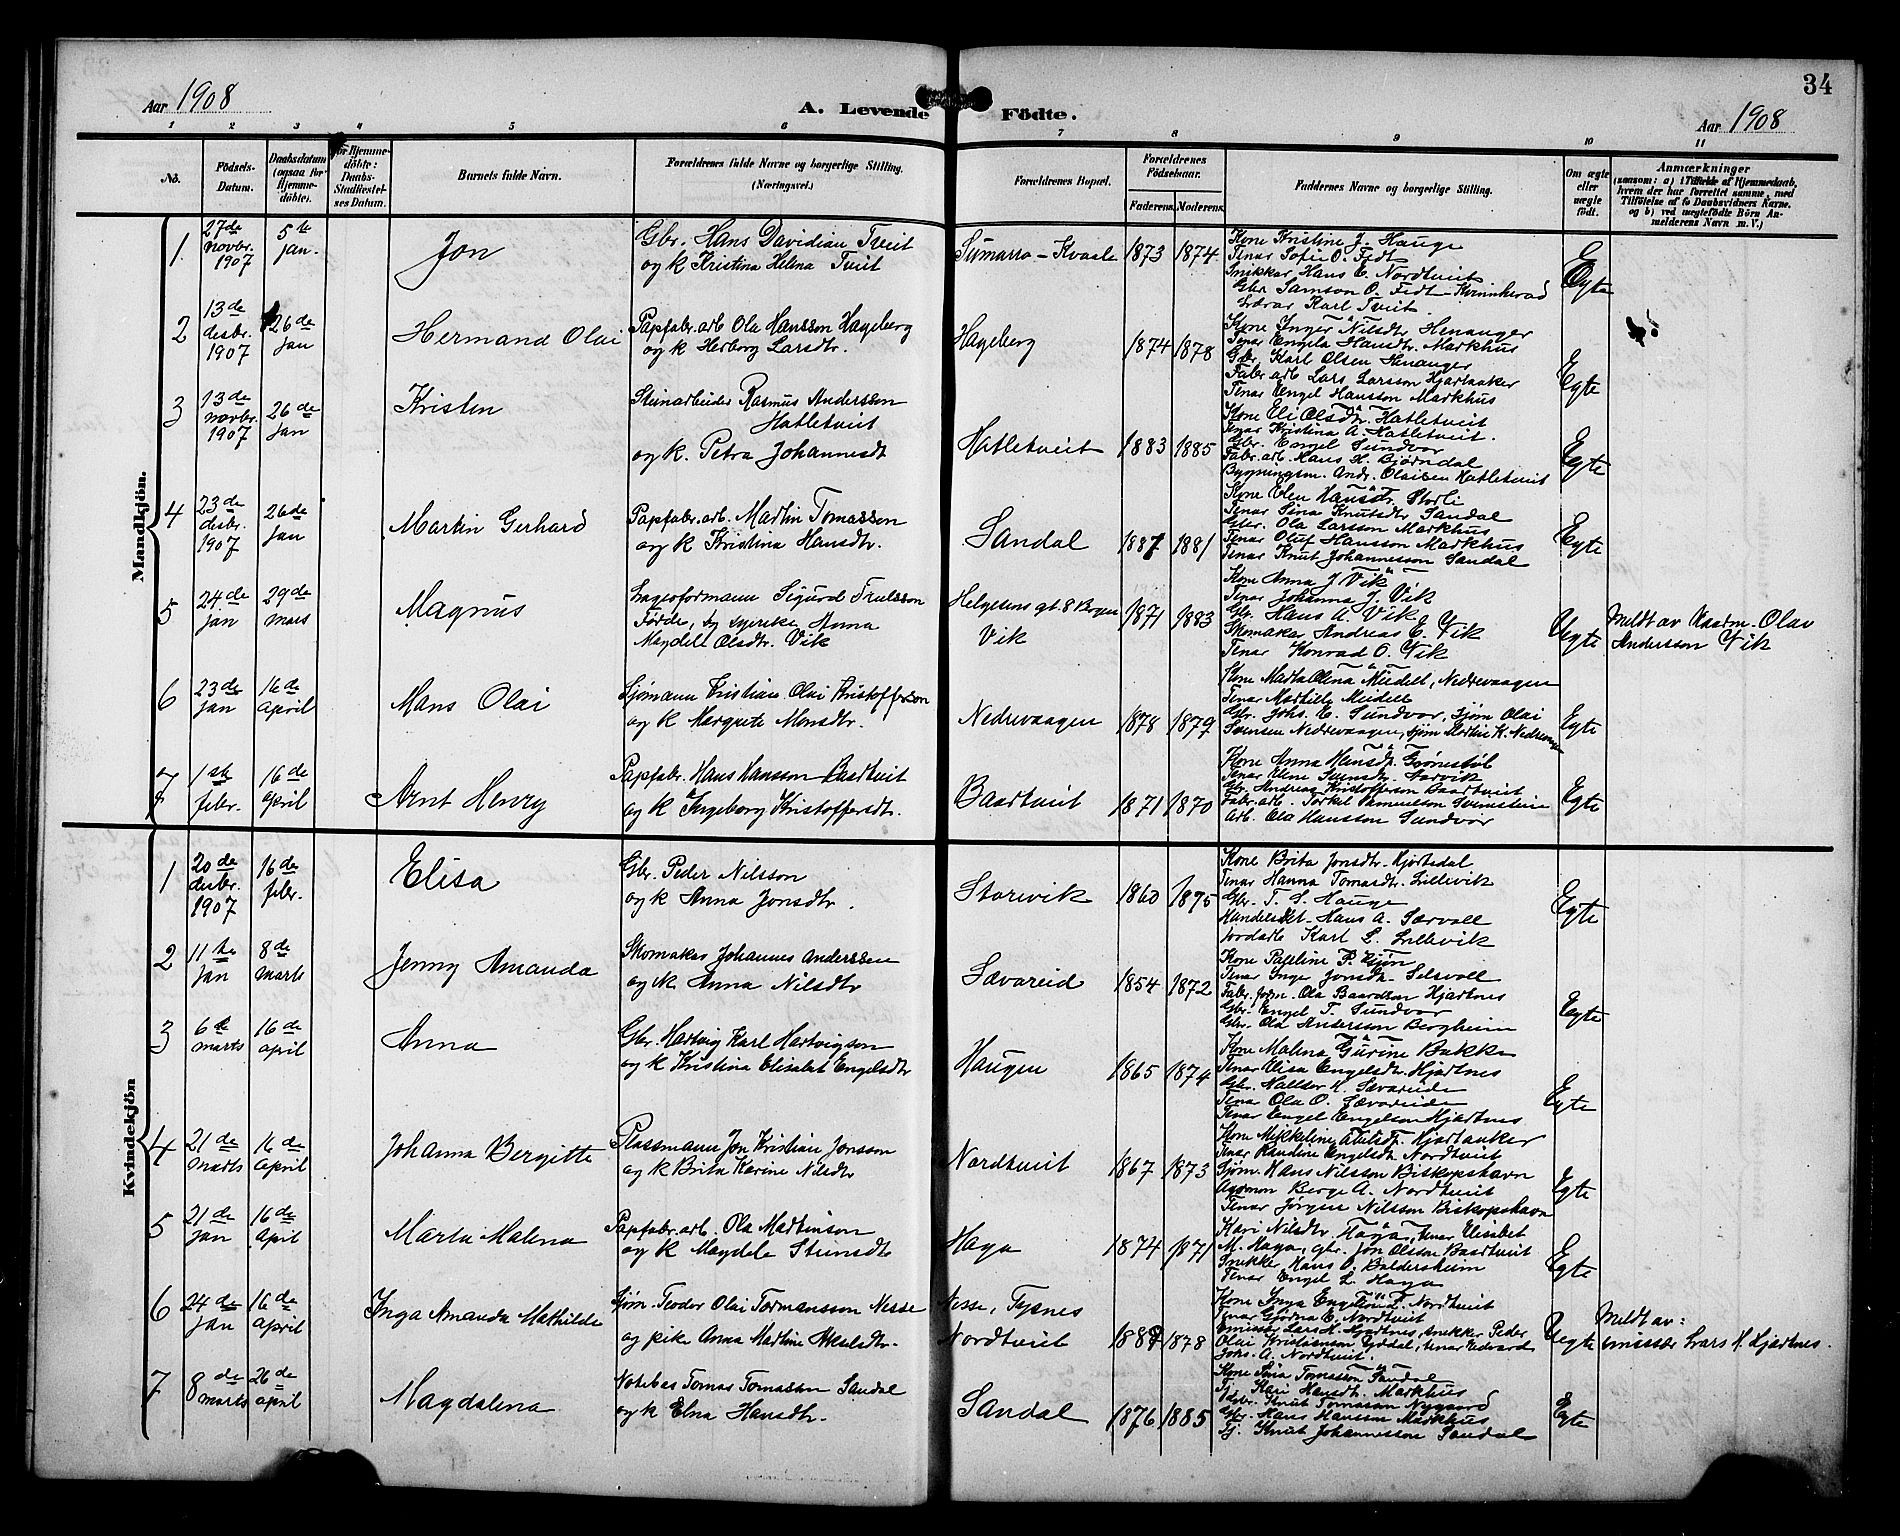 34
Aar 1908
A. Levende Födte.
Aar 1908
1 2 3 4 5 6 7 8 9 10 11
No.
Födsels-Datum.
Daabsdatum (ogsaa for Hjemmedöbte).
For Hjemmedöbte: Daabs-Stadfæstelses Datum.
Barnets fulde Navn.
Forældrenes fulde Navne og borgerlige Stilling. (Næringsvei.)
Forældrenes Bopæl.
Forældrenes Födselsaar.
Faderens. Moderens.
Faddernes Navne og borgerlige Stilling.
Om ægte eller uægte födt.
Anmærkninger
(saasom: a) i Tilfælde af Hjemmedaab, hvem der har forrettet samme, med Tilföielse af to Daabsvidners Navne. og b) ved uægtefödte Börn Anmelderens Navn m. V.)
Mandkjön.
1 27de novbr. 1907 5te jan. Jon
Gbr. Hans Davidian Tveit
og k Kristina Helina Tveit
Sumarra - Kvaale 1873 1874
Kone Kristine J. Hauge
Tenar Sofie O. Fedt
Snikkar Hans E. Nordtveit
Gbr Samson O. Fedt Kvinnherad
Lærar Karl Tveit
Egte
2 13de desbr. 1907 26de jan Hermand Olai
Papfabr. arb Ola Hansson Hageberg
og k Herborg Larsdtr.
Hageberg 1874 1878
Kone Inger Nilsdtr Henanger
Tenar Engela Hansdtr. Markhus
Gbr Karl Olsen Henanger
Fabr arb Lars Larsson Hjartaaker
Tenar Engel Hansson Markhus
Egte
3 13de novbr. 1907 26de jan Kristen
Steinarbeider Rasmus Andersson
Hatletveit
og k. Petra Johannesdt
Hatletveit 1883 1885
Kone Eli Olsdtr. Hatletveit
Tenar Kristina A. Hatletveit.
Gbr. Engel Sundvor
Fabr. arb. Hans H. Bjørndal
Bygningsm. Andr. Olaisen Hatletveit
Egte
4 23de desbr. 1907 26de jan Martin Gerhard
Papfabr. arb. Martin Tomasson
og k Kristina Hansdtr.
Sandal 1881
Kone Elen Hansdtr. Storli
Tenar Sina Knutsdtr Sandal
Gbr. Ola Larsson Markhus
Tenar Oluf Hansson Markhus
Tenar Knut Johannesson Sandal
Egte
5 24de jan 29de mars Magnus
Lagerformann Sigurd Trulsson
Førde, og syerske Anna
Magdele Olsdtr. Vik
Helgesens gt. 8 Bergen
Vik 1871 1883
Kone Anna J Vik
Tenar Johanna J. Vik
Gbr. Hans A. Vik
Skomakar Andreas E. Vik
Tenar Konrad O. Vik
Uegte
Meldt av Olav
Andersson Vik
6 23de jan 16de april Hans Olai
Sjømann Kristian Olai Kristofferson
og k Margrete Monsdtr.
Nedrevaagen 1878 1879
Kone Marta Olena Meidell, Nedrevaagen
Tenar Martille Meidell
Gbr. Johs. E. Sundvor, Sjøm Olai
Svensen Nedrevaagen, Sjøm Martin K. Nedrevaagen
Egte
7 1ste febr. 16de april Arnt Henry
Papfabr. Hans Hansson Baardtveit
og k Ingeborg Kristoffersdtr.
Baardtveit 1871 1870
Kone Anna Hansdtr Grønestøl
Tenar Eline Sveinsdtr. Narvik
Gbr. Andreas Kristofferson Baardtveit
Fabr. arb. Torkel Samuelson Sveinstein
Arb. Ola Hansson Sundvor
Egte
Kvindekjön
1 20de desbr. 1907 16de febr. Elisa
Gbr. Peder Nilsson
og k Anna Jonsdtr.
Storevik 1860 1875
Kone Brita Jonsdtr. Hjortedal
Tenar Hanna Tomasdtr. Lillevik
Gbr. T. S. Hauge
Handelsbet. Hans A. Særvoll
Jordarb Karl L. Lillevik
Egte
2 11te jan 8de marts Jenny Amanda
Skomakar Johannes Anderssen
og k Anna Nilsdtr
Sævareid 1854 1872
Kone Pauline P. Gjøn
Tenar Inger Jonsdtr. Selsvoll
Fabr. form. Ola Baardson Hjartnes
Gbr. Engel T. Sundvor
Gbr. Ola Andersson Bergheim
Egte
3 6te marts 16de april Anna
Gbr. Hartvig Karl Hartvigson
og k Kristina Elisabet Engelsdtr
Haugen 1865 1874
Kone Malena Gurine Bakke
Tenar Elisa Engelsdtr. Hjartnes
Gbr. Halldor K. Sævareide
Tenar Ola O. Sævareide
Tenar Engel Engelsen Hjartnes
Egte
4 21de marts 16de april Johanna Bergitte
Plassmann Jon Kristian Jonsson
og k Brita Karine Nilsdtr
Nordtveit 1867 1873
Kone Mikkeline Hjartaaker
Tenar Randine Engelsdtr. Nordtveit
Sjøm. Hans Nilsson Biskopshavn
Berge A. Nordtveit
Tenar Jørgen Nilsson Biskopshavn
Egte
5 21de jan 16de april Marta Malena
Papfabr. arb. Ola Martinson
og k Magdela Steinsdtr
Haga 1874 1871
Kari Nilsdtr Haga, Tenar Elisabet
M. Haga, gbr. Jon Olsson Baardtveit
Snikker Hans O. Baldersheim
Tenar Engel L. Haga
Egte
6 24de jan 16de april Inga Amanda Mathilde
Sjøm. Teodor Olai Tormansson Nesse
og pike Anna Martine Akseldtr.
Nesse, Tysnes
Nordtveit 1878
Kone Inga Nordtveit
Tenar Gjørine E. Nordtveit
Emissær Lars H. Hjartnes, Snekker Peder
Olai Kristianson Eikedal, tenar Edvard
Johs. A. Nordtveit.
Uegte
Meldt av:
Emissær Lars H. Hjartnes.
7 8de marts 26de april Magdalena
Notebas Tomas Tomasson Sandal
og k Elna Hansdtr.
Sandal 1876 1885
Kone Sina Tomasson Sandal
Tj. Kari Hansdtr. Markhus
Gbr. Knut Tomasson Nygaard
Gbr. Hans Hansson Markhus
Tj. Knut Johannesson Sandal
Egte